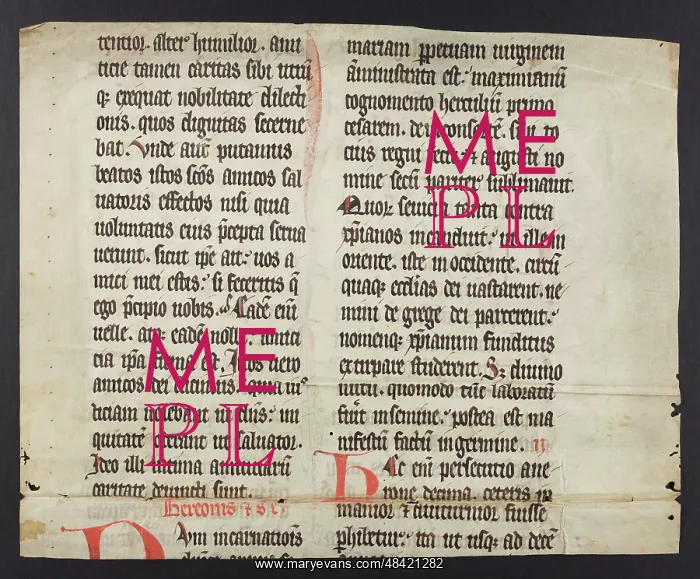 tentior. alter humilior. ami
ticie tamen caritas sibi utrū
q; exequat nobilitate dilecti
onis. quos dignitas secerne
bat. Vnde aut putamus
beatos istos scōs amicos sal
uatoris effectos nisi quia
uoluntatis eius pcepta serua
uerunt. sicut ipe ait. uos a
mici mei estis. si feceritis q
ego pcipio uobis. Eadē eni
uelle. eadē nolle. amici
cia ipa est. uero
amicos dei
iciam
quitatē saluator.
Ideo illi intima amiciciarū
caritate deuincti sunt.
Hereonis
Dvm incarnatiōis
mariam ppetuam uirginem
āministrata est. maximianū
cognomento herculiū primo
cesarem.
eius regni augusti no
mine secū pariter sublimauit.
Quor seuicia tanta contra
xpianos incanduit. ut ille in
oriente. iste in occidente. circū
quaq; ecclias dei uastarent. ne
mini de grege dei parcerent.
nomenq; xpianum funditus
extirpare studerent. S; diuino
nutu. quomodo tūc laboratū
fuit in semine. postea est ma
nifestū factū in germine.
Hec eni persecutio ane
rone decima. ceteris
manior fuisse
phibetur. ita ut usq; ad decē
ME
PL
ME
PL
www.maryevans.com/48421282